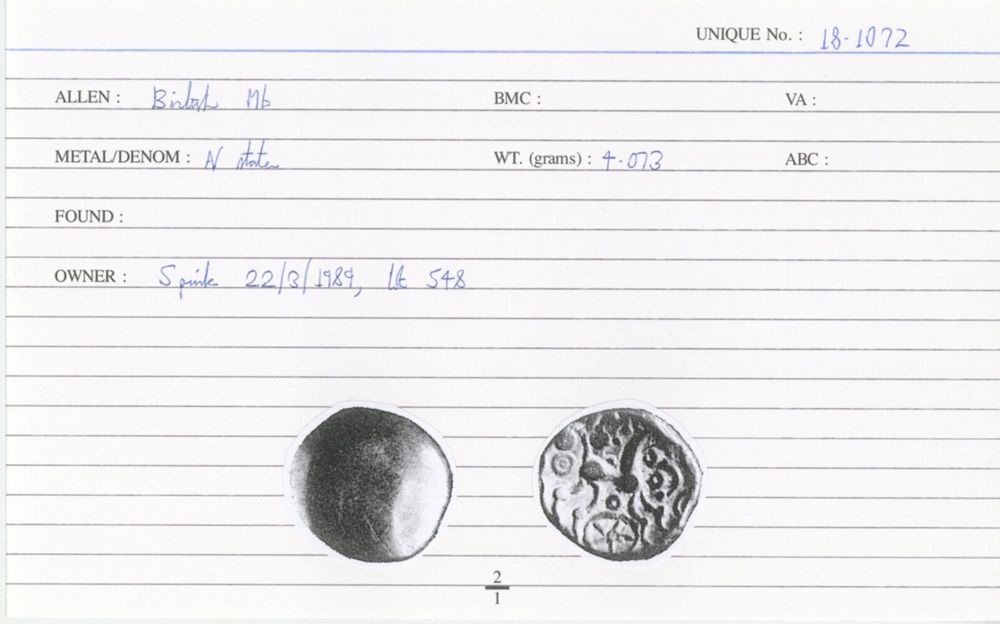 UNIQUE No. : 18-1072
ALLEN : British Mb BMC : VA :
METAL/DENOM : AV stater WT. (grams) : 4.073 ABC :
FOUND :
OWNER : Spink 22/3/1989, lot 548
2
1